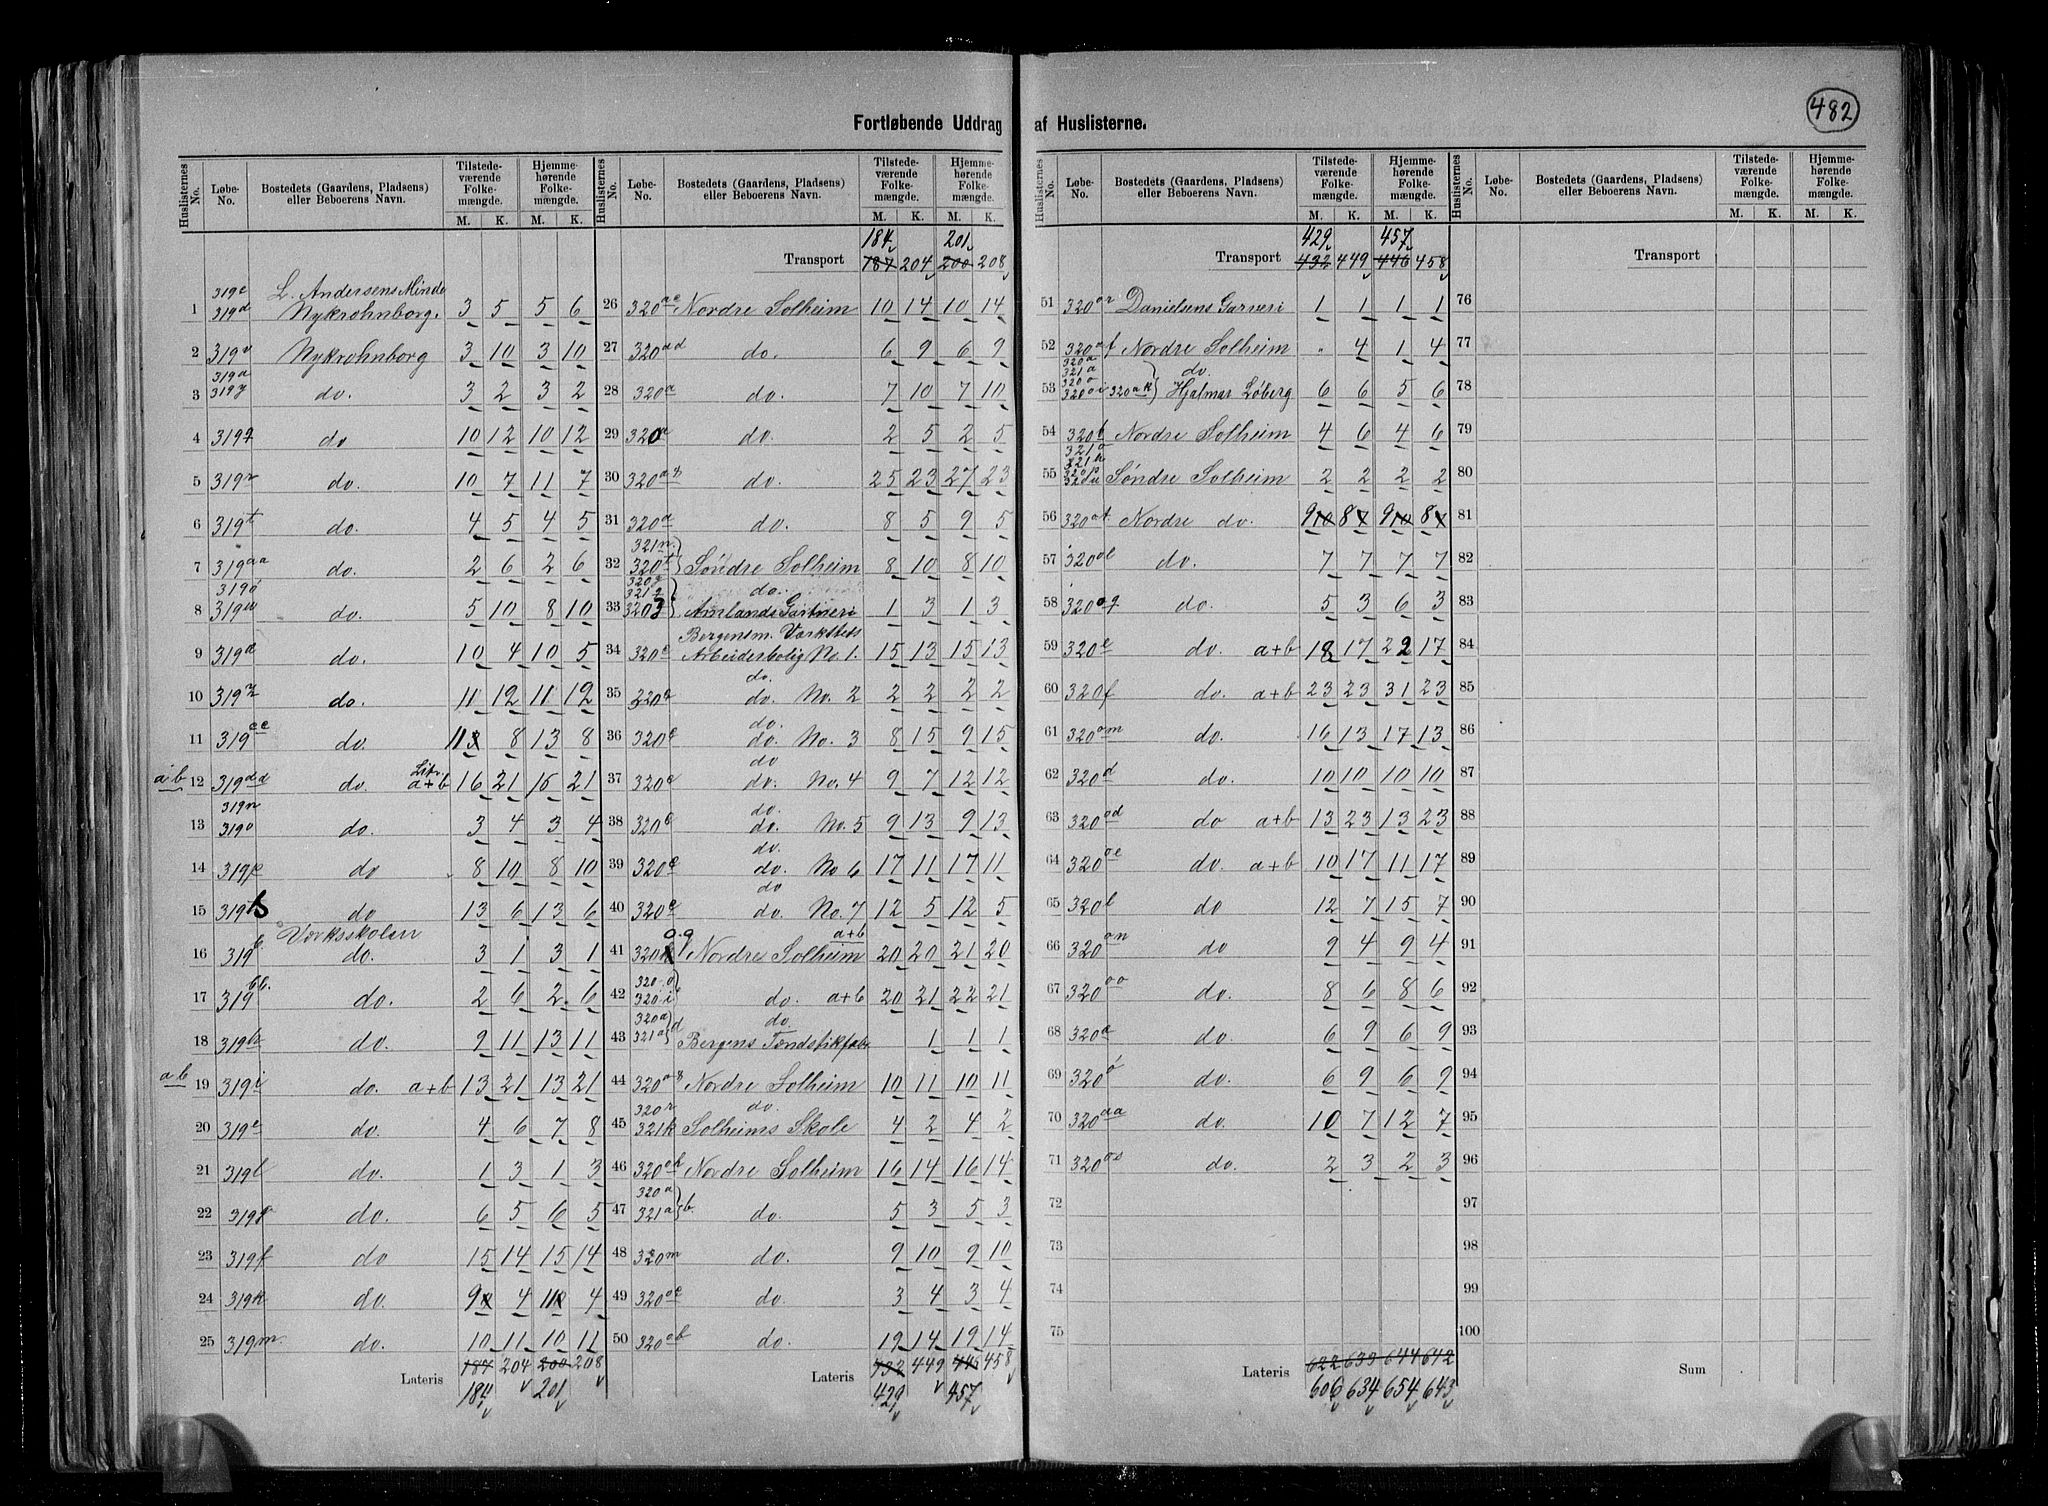 482
Fortløbende Uddrag af Huslisterne.
Huslisternes No. Løbe-No. Bostedets (Gaardens, Pladsens) eller Beboerens Navn. Tilstede-værende Folke-mængde. M. K. Hjemme-hørende Folke-mængde. M. K.
L. Andersens Minde
1 319c 319d Nykrohnborg. 3 5 5 6
2 319v Nykrohnborg 3 10 3 10
3 319a 319y do. 3 2 3 2
4 319 do 10 12 10 12
5 319r do. 10 7 11 7
6 319t do. 4 5 4 5
7 319aa do. 2 6 2 6
8 319ö 319 do. 5 10 8 10
9 319 do. 10 4 10 5
10 319z do. 11 12 11 12
11 319ee do. 11 8 13 8
a b 12 319dd do. Litr. a+b 16 21 16 21
13 319n 319o do. 3 4 3 4
14 319p do 8 10 8 10
15 319s do 13 6 13 6
Værksskolen
16 319b. do. 3 1 3 1
17 319bb. do. 2 6 2 6
18 319h do. 9 11 13 11
a b 19 319i do. a+b 13 21 13 21
20 319e do. 4 6 7 8
21 319l do. 1 3 1 3
22 319 do. 6 5 6 5
23 319f do 15 14 15 14
24 319k do. 9 4 11 4
25 319m. do. 10 11 10 11
Lateris 187 204 200 208
184 201
Huslisternes No. Løbe-No. Bostedets (Gaardens, Pladsens) eller Beboerens Navn. Tilstede-værende Folke-mængde. M. K. Hjemme-hørende Folke-mængde. M. K.
184 201
Transport 187 204 200 208
26 320ae Nordre Solheim 10 14 10 14
27 320ad do. 6 9 6 9
28 320a do. 7 10 7 10
29 320a do. 2 5 2 5
30 320a do. 25 23 27 23
31 320a do. 8 5 9 5
32 321n. 320t Søndre Solheim 8 10 8 10
do.
33 320g 321g 3203 Amlands Gartneri 1 3 1 3
Bergensm. Værksteds
34 320c Arbeiderbolig No. 1. 15 13 15 13
do.
35 320c do. No. 2 2 2 2 2
do.
36 320c do. No. 3 8 15 9 15
do
37 320c do. No. 4 9 7 12 12
do.
38 320c do. No. 5 9 13 9 13
do.
39 320c do. No 6 17 11 17 11
do
40 320c do. No. 7 12 5 12 5
a+b
41 320 Nordre Solheim 20 20 21 20
42 320.o 320.i do. a+b 20 21 22 21
do
43 320a 321a d Bergens Tændstikfabr 1 1 1
44 320 Nordre Solheim 10 11 10 11
do.
45 320r 321k Solheims Skole 4 2 4 2
46 320ok Nordre Solheim 16 14 16 14
47 320a 321a b. do. 5 3 5 3
48 320m do. 9 10 9 10
49 320oc do. 3 4 3 4
50 320ob do. 19 14 19 14
Lateris 432 449 446 458
429 457
Huslisternes No. Løbe-No. Bostedets (Gaardens, Pladsens) eller Beboerens Navn. Tilstede-værende Folke-mængde. M. K. Hjemme-hørende Folke-mængde. M. K.
429 457
Transport 432 449 446 458
51 320or Danielsens Garveri 1 1 1 1
52 320af Nordre Solheim " 4 1 4
do.
53 320a 321a 320o 320oi 320ak Hjalmar Løberg 6 6 5 6
54 320b Nordre Solheim 4 6 4 6
55 321o 321h 320p 320u Søndre Solheim 2 2 2 2
56 320at Nordre do. 9 8 9 8
57 320ol do. 7 7 7 7
58 320og do. 5 3 6 3
59 320e do. a+b 18 17 22 17
60 320f do. a+b 23 23 31 23
61 320om do. 16 13 17 13
62 320d do. 10 10 10 10
63 320od do a+b 13 23 13 23
64 320oe do. a+b 10 17 11 17
65 320l do 12 7 15 7
66 320on do 9 4 9 4
67 320oo do. 8 6 8 6
68 320a do. 6 9 6 9
69 320ó do. 6 9 6 9
70 320aa do. 10 7 12 7
71 320os do. 2 3 2 3
72
73
74
75
Lateris 622 633 644 642
606 634 654 643
Huslisternes No. Løbe-No. Bostedets (Gaardens, Pladsens) eller Beboerens Navn. Tilstede-værende Folke-mængde. M. K. Hjemme-hørende Folke-mængde. M. K.
Transport
76
77
78
79
80
81
82
83
84
85
86
87
88
89
90
91
92
93
94
95
96
97
98
99
100
Sum